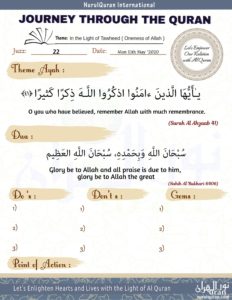 NurulQuran International
JOURNEY THROUGH THE QURAN
Theme: In the Light of Tawheed ( Oneness of Allah )
Juzz: 22
Date: Mon 11th May '2020
Let's Empower
Our Relation
with Al Quran
Theme Ayah :
يَـٰٓأَيُّهَا ٱلَّذِينَ ءَامَنُوا۟ ٱذْكُرُوا۟ ٱللَّهَ ذِكْرًا كَثِيرًا ﴿٤١﴾
O you who have believed, remember Allah with much remembrance.
(Surah Al Ahzaab 41)
Dua :
سُبْحَانَ اللَّهِ وَبِحَمْدِهِ، سُبْحَانَ اللَّهِ الْعَظِيمِ
Glory be to Allah and all praise is due to him,
glory be to Allah the great
(Sahih Al Bukhari 6406)
Do 's : Don't s : Gems :
1) 1)
2) 2)
3) 3)
Point of Action :
Let's Enlighten Hearts and Lives with the Light of Al Quran
نور القرآن